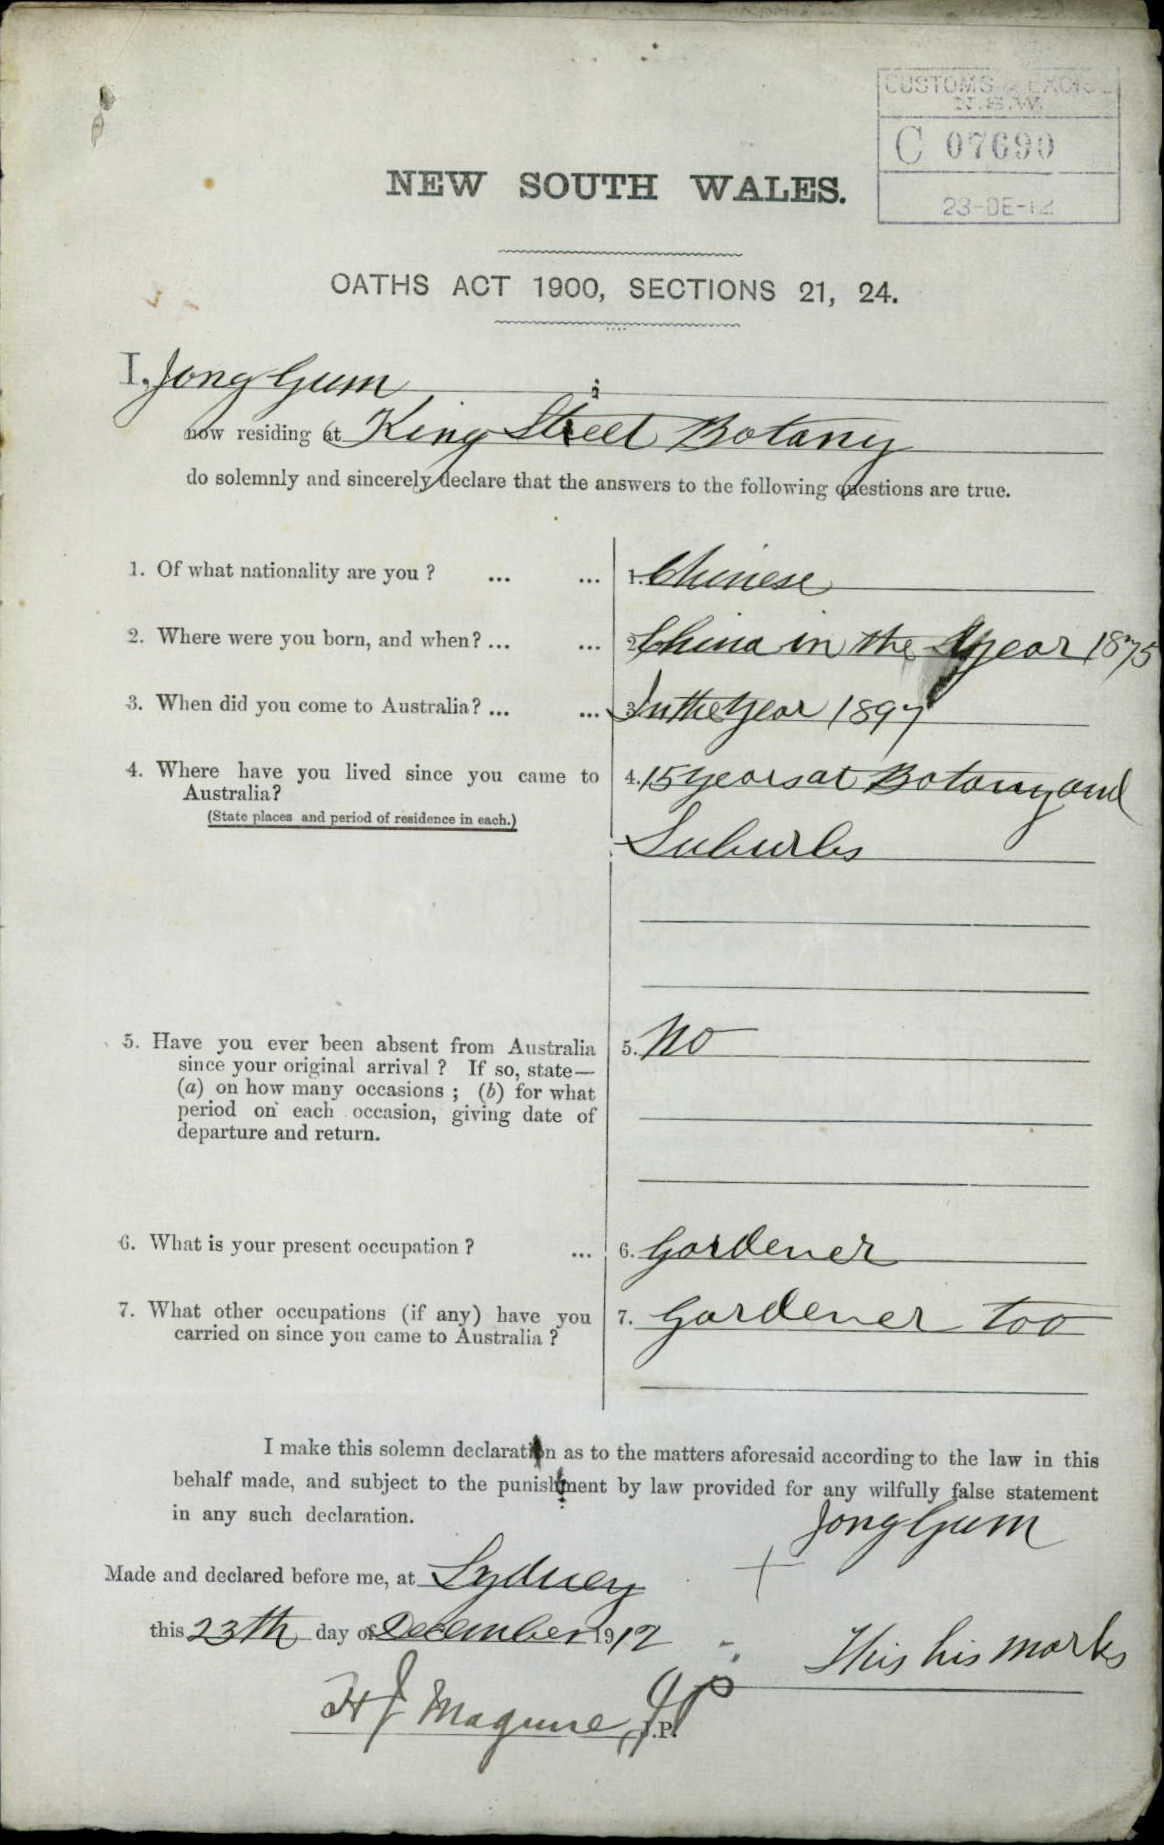 CUSTOMS & EXCISE
N.S.W.
C 07690
23-DE-12
NEW SOUTH WALES.
OATHS ACT 1900, SECTIONS 21, 24.
I, Jong Gum
now residing at King Street Botany
do solemnly and sincerely declare that the answers to the following questions are true.
1. Of what nationality are you ? ... ... 1. Chinese
2. Where were you born, and when? ... ... 2. China in the year 1875
3. When did you come to Australia? ... ... 3. In the Year 1897
4. Where have you lived since you came to 4. 15 years at Botany and
Australia?
(State places and period of residence in each.)
Suburbs
5. Have you ever been absent from Australia 5. No
since your original arrival ? If so, state—
(a) on how many occasions ; (b) for what
period on each occasion, giving date of
departure and return.
6. What is your present occupation ? ... 6. Gardener
7. What other occupations (if any) have you 7. Gardener too
carried on since you came to Australia ?
I make this solemn declaration as to the matters aforesaid according to the law in this
behalf made, and subject to the punishment by law provided for any wilfully false statement
in any such declaration.
Jong Gum
Made and declared before me, at Sydney +
this 23th day of December 1912
This his marks
H J Maguire JP
J.P.